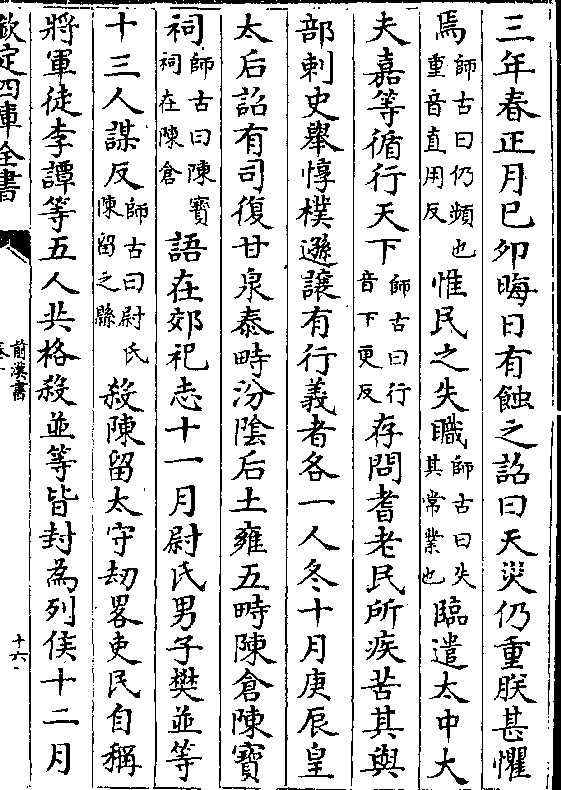 三年春正月己卯晦日有蝕之詔曰天災仍重朕甚懼
焉師古曰仍頻也重音直用反惟民之失職師古曰失其常業也臨遣太中大
夫嘉等循行天下師古曰行音下更反存問耆老民所疾苦其與
部刺史舉惇樸遜讓有行義者各一人冬十月庚辰皇
太后詔有司復甘泉泰畤汾陰后土雍五畤陳倉陳寶
祠師古曰陳寶祠在陳倉語在郊祀志十一月尉氏男子樊並等
十三人謀反師古曰尉氏陳留之縣殺陳留太守劫畧吏民自稱
將軍徒李譚等五人共格殺並等皆封為列侯十二月
欽定四庫全書
前漢書
十六